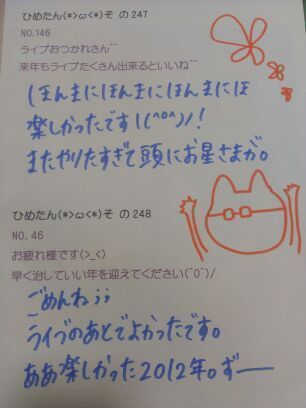 ひめたん(*>ω<*)そ の247
NO.146
ライブおつかれさん^^
来年もライブたくさん出来るといいね^^
ほんまにほんまにほんまにほ
楽しかったです！(^o^)ノ！
またやりたすぎて頭にお星さまが。
ひめたん(*>ω<*)そ の248
NO. 46
お疲れ様です(>_<)
早く治していい年を迎えてください(^0^)/
ごめんね；；
ライブのあとでよかったです。
ああ楽しかった2012年。ずー